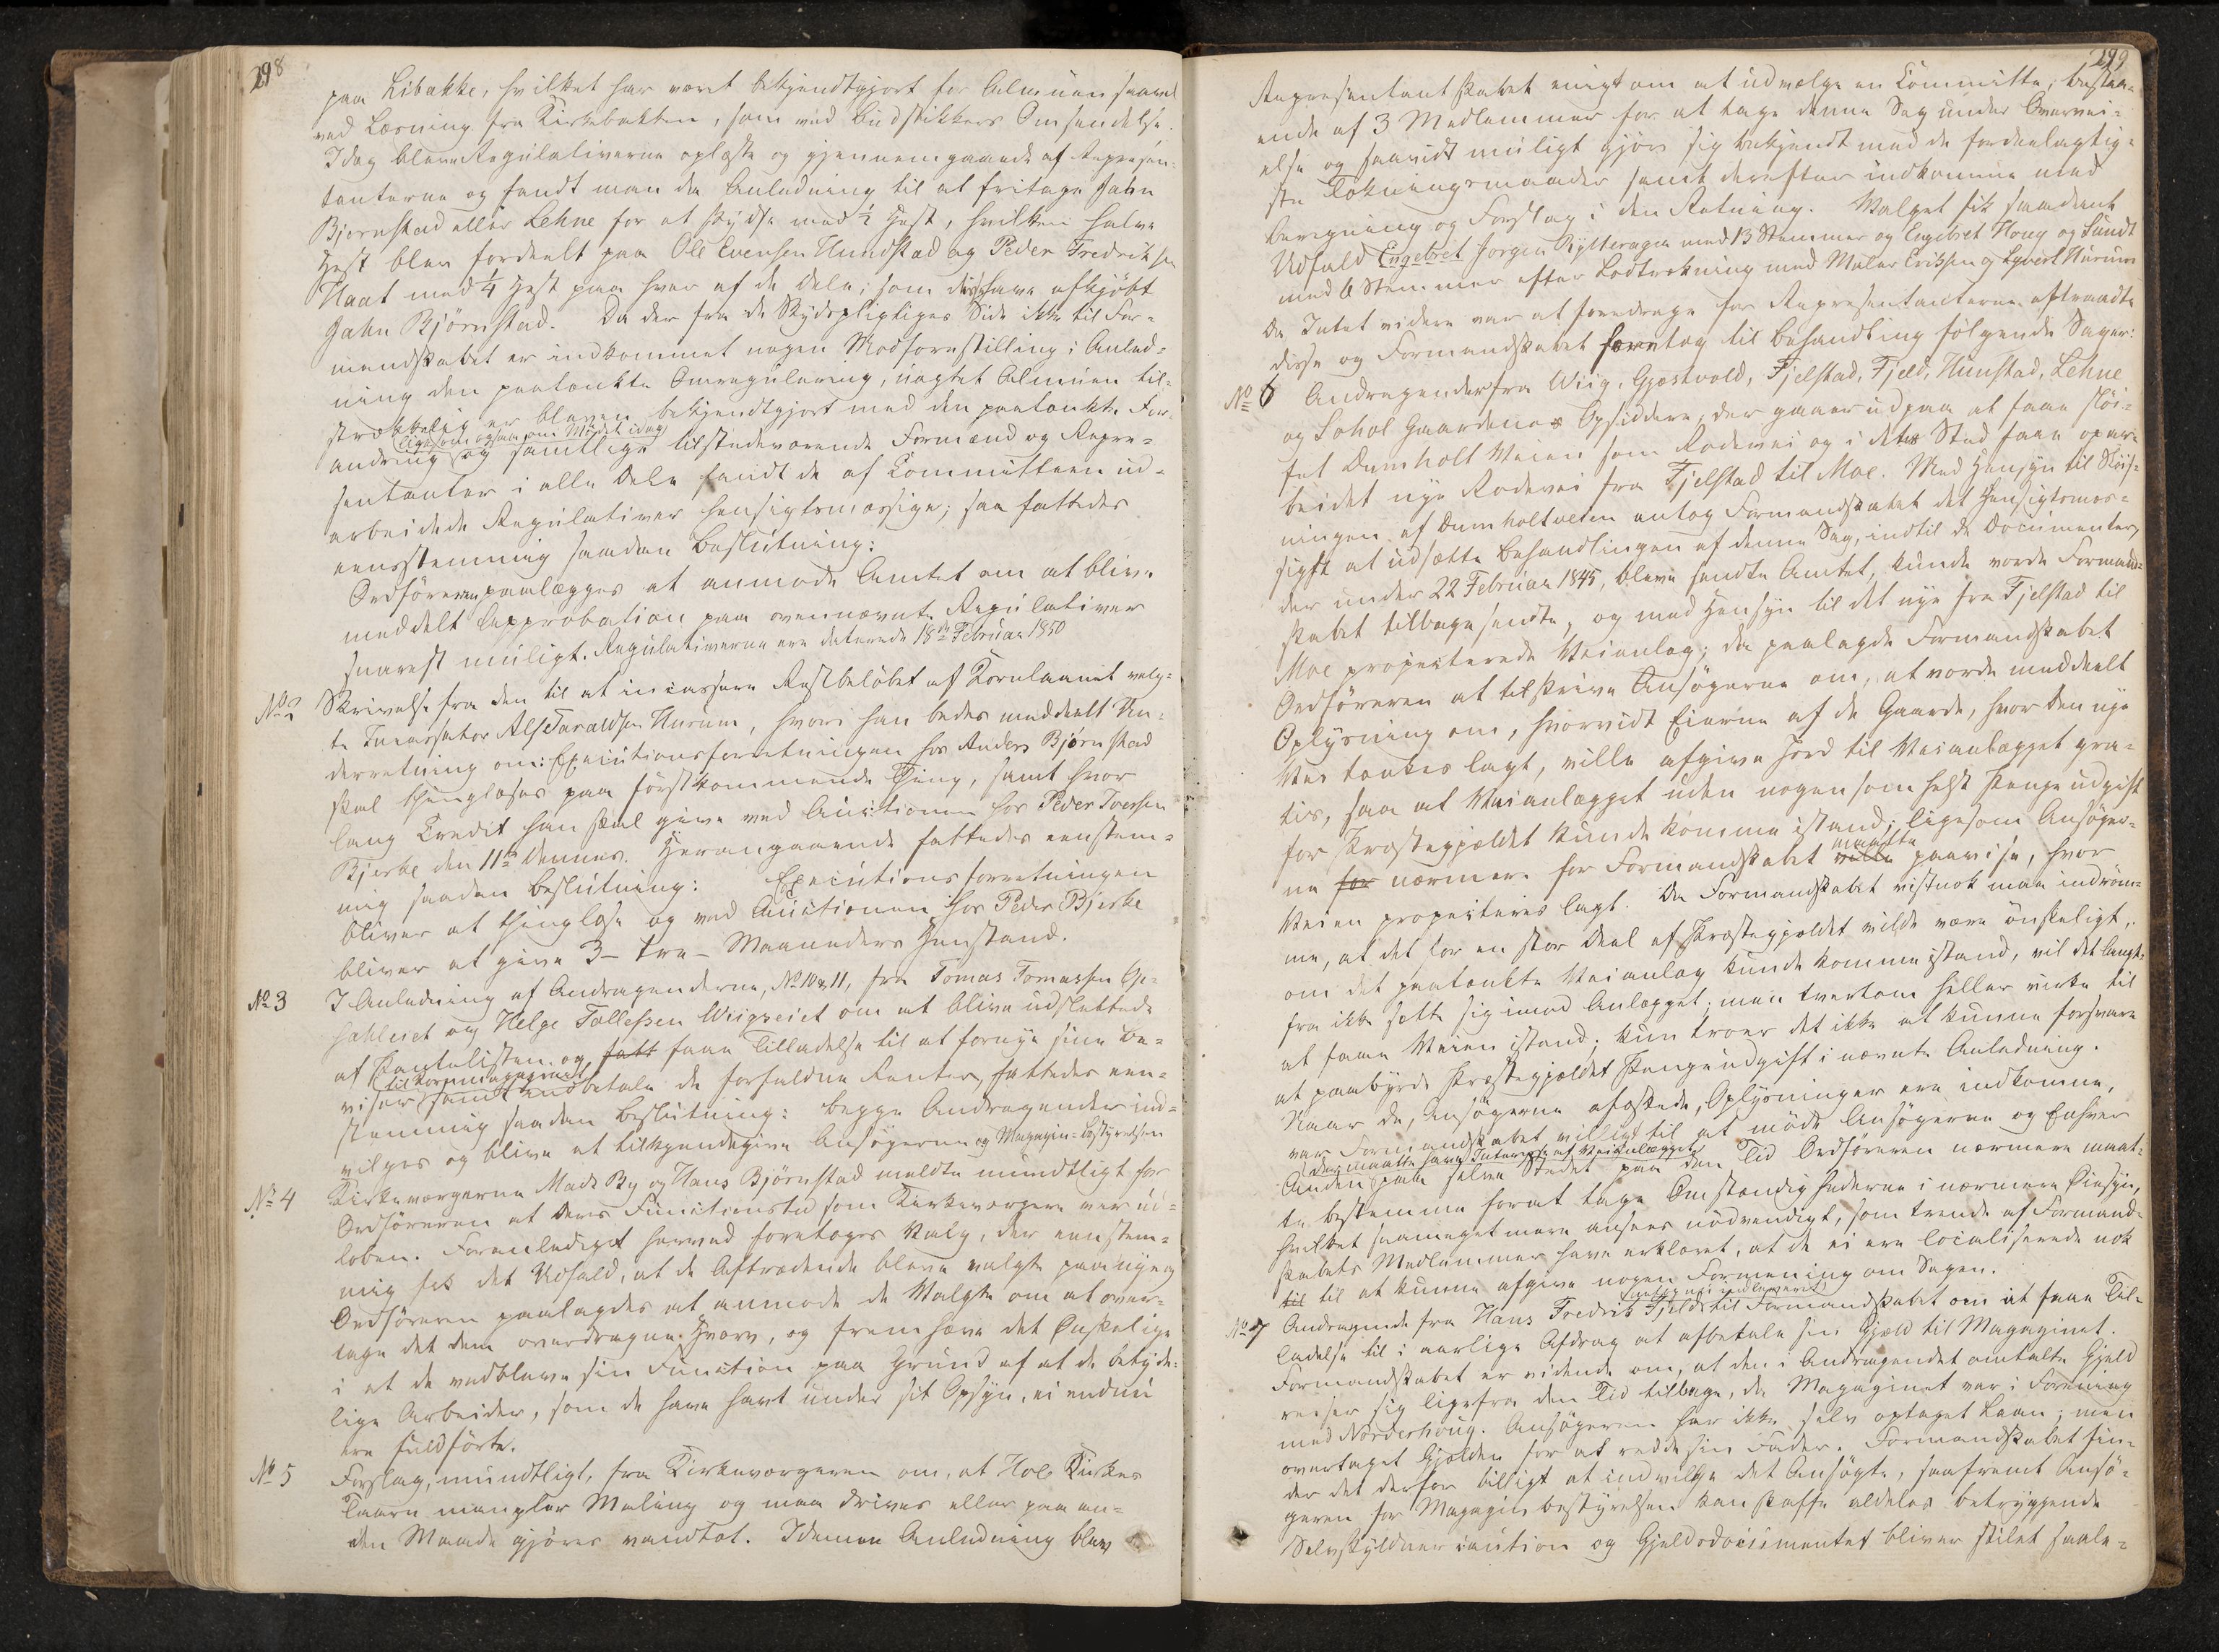 298
paa Libakke, hvilket har været bekjendtgjort for Almuen saavel
ved Læsning fra Kirkebakken, som ved Budstikkers Omsendelse.
Idag bleve Regulativerne oplæste og gjennemgaaede af Repræsen-
tanterne og fandt man da Anledning til at fritage Jahn
Bjørnstad eller Lehne for at skydse med ½ Hest, hvilken halve
Hest blev fordeelt paa Ole Evensen Hundstad og Peder Fredriksen
Haat med ¼ Hest paa hver af de Dele, som disse have afkjøbt
Jahn Bjørnstad. Da der fra de Skydspligtiges Side ikke til For-
mandskabet er indkommet nogen Modforestilling i Anled-
ning den paatænkte Omregulering, uagtet Almuen til-
strækkelig er bleven bekjendtgjort med den paatænkte For-
ligesom ogsaa om Mødet idag
andring og samtlige tilstedeværende Formænd og Repræ-
sentanter i alle Dele fandt de af Committeen ud-
arbeidede Regulativer hensigtsmæssige; saa fattedes
eensstemmig saadan Beslutning:
Ordføreren paalægges at anmode Amtet om at blive
meddelt Approbation paa ovennævnte Regulativer
snarest muligt. Regulativerne ere daterede 18de Februar 1850
No 2 Skrivelse fra den til at incassere Restbeløbet af Kornlaanet valg-
te Incassator Alf Haraldsen Hurum, hvori han bedes meddeelt Un-
derretning om: Executionsforretningen hos Anders Bjørnstad
skal thinglæses paa førstkommende Thing, samt hvor
lang Credit han skal give ved Auctionen hos Peder Iversen
Bjerke den 11te dennes. Herangaaende fattedes eenstem-
mig saadan Beslutning: Executionsforretningen
bliver at thinglæse og ved Auctionen hos Peder Bjerke
bliver at give 3 - tre - Maaneders Henstand.
No 3 I Anledning af Andragenderne, No 10 & 11, fra Tomas Tomassen
og Helge Tollefsen Wiigseiet om at blive udslettede
af Panteliften og fatt faae Tilladelse til at fornye sine Be-
til Kornmagazinet
viser samt indbetale de forfaldne Renter, fattedes een-
stemmig saadan Beslutning: begge Andragender ind-
vilges og blive at tilkjendegive Ansøgerne og Magazin-Bestyrelsen
No 4 Kirkeværgerne Mads By og Hans Bjørnstad meldte mundtligt for
Ordføreren at deres Functionstid som Kirkeværgere var ud-
løben. Foranlediget herved foretoges Valg, der eenstem-
mig fik det Udfald, at de Aftrædende bleve valgte paanyog
Ordføreren paalagdes at anmode de Valgte om at over-
tage det dem overdragne Hverv, og fremhæve det Ønskelige
i at de vedbleve sin Function paa Grund af at de betyde-
lige Arbeider, som de have havt under sit Opsyn, ei endnu
ere fuldførte.
No 5 Forslag, mundtligt, fra Kirkeværgerne om, at Hole Kirkes
Taarn mangler Maling og maa drives eller paa an-
den Maade gjøres vandtæt. I denne Anledning blev
299
Repræsentantskabet enigt om at udvælge en Committe, bestaa-
ende af 3 Medlemmer for at tage denne Sag under Overvei-
else og saavidt muligt gjøre sig bekjendt med de fordeelagtig-
ste Tækningsmaader samt derefter indkomme med
Beregning og Forslag i den Retning. Valget fik saadant
Udfald Engebret Jørgen Rytteragen med 13 Stemmer og Engebret Houg og Sundt
med 6 Stemmer efter Lodtrækning med Maler Eriksen og Hurum
Da Intet videre var at foredrage for Repræsentanterne aftraadte
disse og Formandskabet foretog til Behandling følgende Sager:
No 6 Andragender fra Wiig, Gjæstvold, Fjelstad, Fjeld, Hunstad, Lehne
og Sohol Gaardenes Opsiddere, der gaaer ud paa at faae sløi-
fet Damholt Veien som Rodevei og i dets Sted faae opar-
beidet nye Rodevei fra Fjelstad til Moe. Med Hensyn til Sløif-
ningen af Damholtveien antog Formandskabet det hensigtsmæs-
sigst at udsætte Behandlingen af denne Sag, indtil de Documenter,
der under 22 Februar 1845, bleve sendte Amtet, kunde vorde Formand-
skabet tilbagesendte, og med Hensyn til det nye fra Fjelstad til
Moe projecterede Veianlæg; da paalagde Formandskabet
Ordføreren at tilskrive Ansøgerne om, at vorde meddeelt
Oplysning om, hvorvidt Eierne af de Gaarde, hvor den nye
Vei tænkes lagt, ville afgive Jord til Veianlægget gra-
tis, saa at Veianlægget uden nogensomhelst Pengeudgift
for Præstegjældet kunde komme istand; ligesom Ansøger-
maatte
ne for nærmere for Formandskabet ville paavise, hvor
Veien projecteres lagt. Da Formandskabet vistnok maa indrøm-
me, at det for en stor Deel af Præstegjældet vilde være ønskeligt,
om det paatænkte Veianlæg kunde komme istand, vil det langt-
fra ikke sætte sig imod Anlægget; men tvertom heller virke til
at faae Veien istand; kun troer det ikke at kunne forsvare
at paabyrde Præstegjældet Pengeudgift i nævnte Anledning.
Naar de, Ansøgerne afæskede, Oplysninger ere indkomne,
var Formandskabet villigt til at møde Ansøgerne og Enhver
der maatte have Interesse af Veianlægget
Anden paa selve Stedet paa den Tid Ordføreren nærmere maat-
te bestemme forat tage Omstændighederne i nærmere Øiesyn,
hvilket saameget mere ansees nødvendigt, som trende af Formand-
skabets Medlemmer have erklæret, at de ei ere localiserede nok
til til at kunne afgive nogen Formening om Sagen.
No 7 Andragende fra Hans Fredrik Fjeld til Formandskabet om at faae Til-
ladelse til i aarlige Afdrag at afbetale sin Gjæld til Magazinet.
Formandskabet er vidende om, at den i Andragendet omtalte Gjeld
reiser sig ligefra den Tid tilbage, da Magazinet var i Forening
med Norderhoug. Ansøgeren har ikke selv optaget Laan; men
overtaget Gjælden for at redde sin Fader. Formandskabet fin-
der det derfor billigt at indvilge det Ansøgte, saafremt Ansø-
geren for Magazinbestyrelsen kan skaffe aldeles betryggende
Selvskyldnercaution og Gjeldsdocumentet bliver stilet saale-